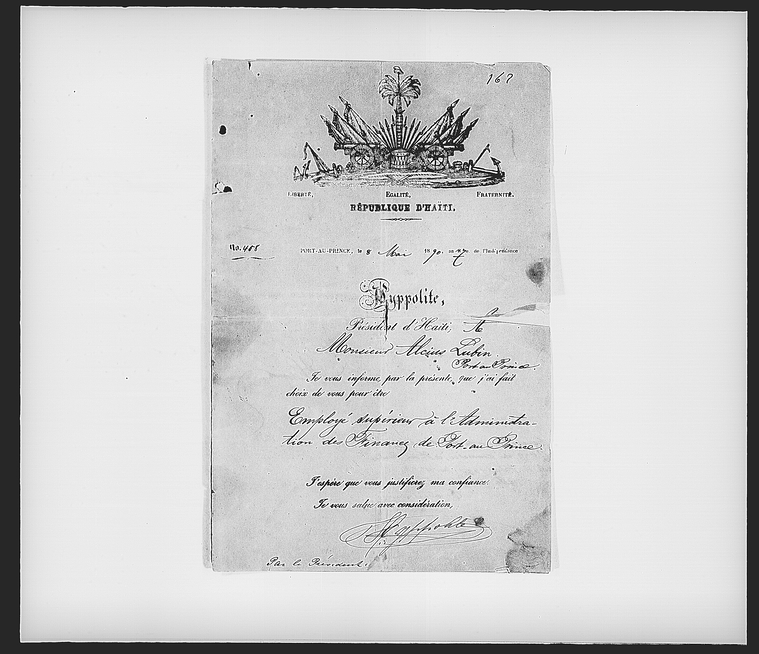 167
LIBERTÉ, EGALITÉ, FRATERNITÉ.
RÉPUBLIQUE D'HAITI.
No. 488
PORT-AU-PRINCE, le 8 Mai 1890, an 87e de l'Indépendance
Hyppolite,
Président d'Haïti, A
Monsieur Alcius Lubin
Port au Prince.
Je vous informe par la présente, que j'ai fait
choix de vous pour être
Employé supérieur à l'Administra-
tion des Finances de Port-au-Prince.
J'espère que vous justifierez ma confiance.
Je vous salue avec considération,
Hyppolite
Par le Président: